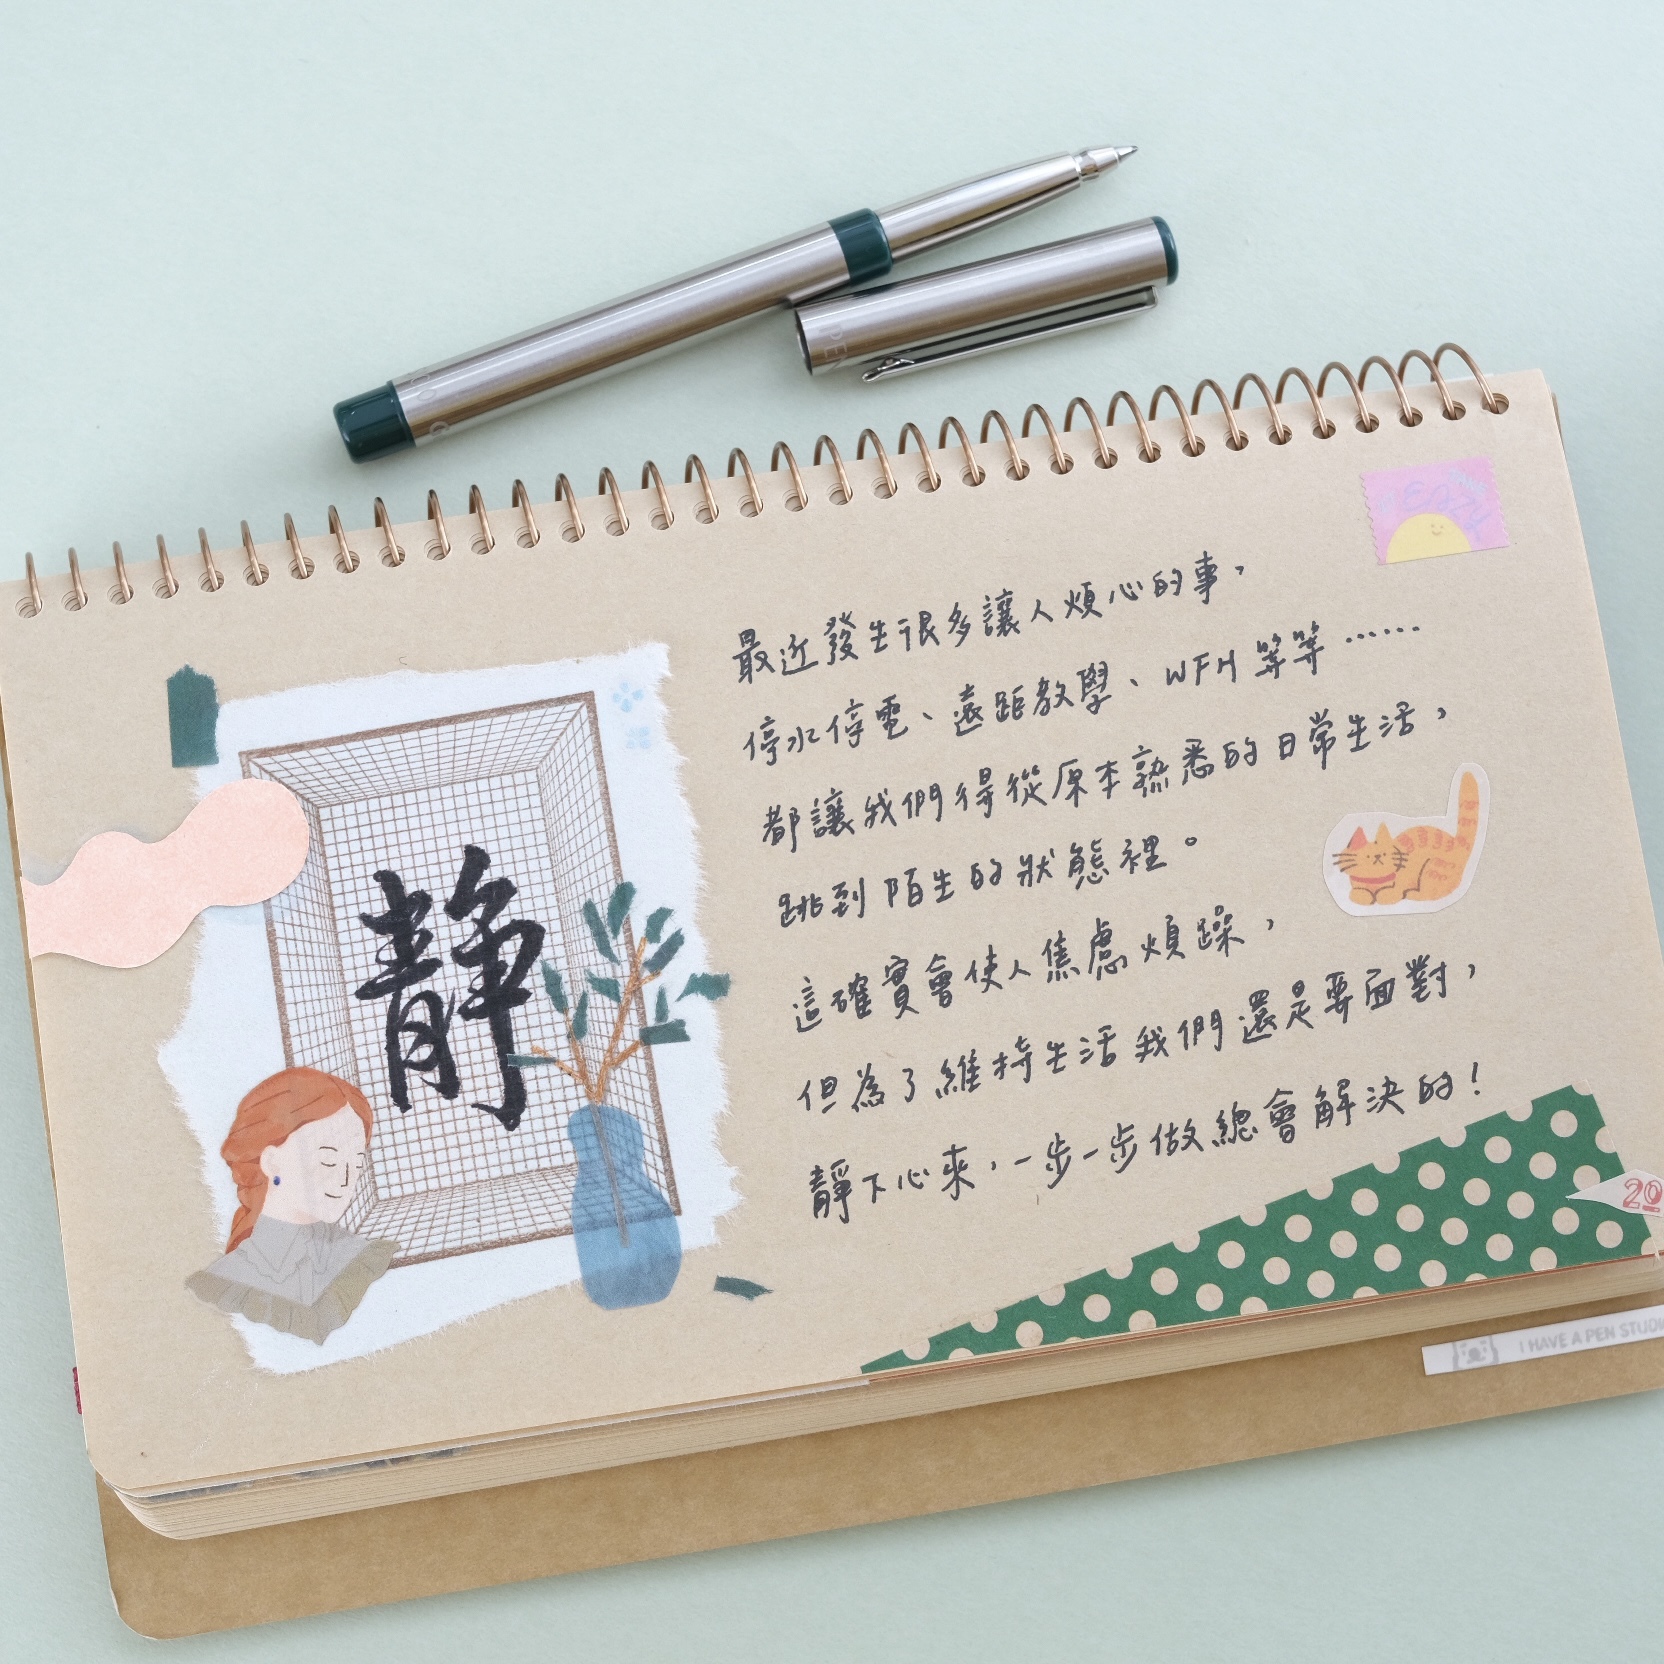 靜
最近發生很多讓人煩心的事,
停水停電、遠距教學、WFH 等等⋯⋯
都讓我們得從原本熟悉的日常生活,
跳到陌生的狀態裡。
這確實會使人焦慮煩躁,
但為了維持生活我們還是要面對,
靜下心來,一步一步做總會解決的!
20
I HAVE A PEN STUDIO
PEN